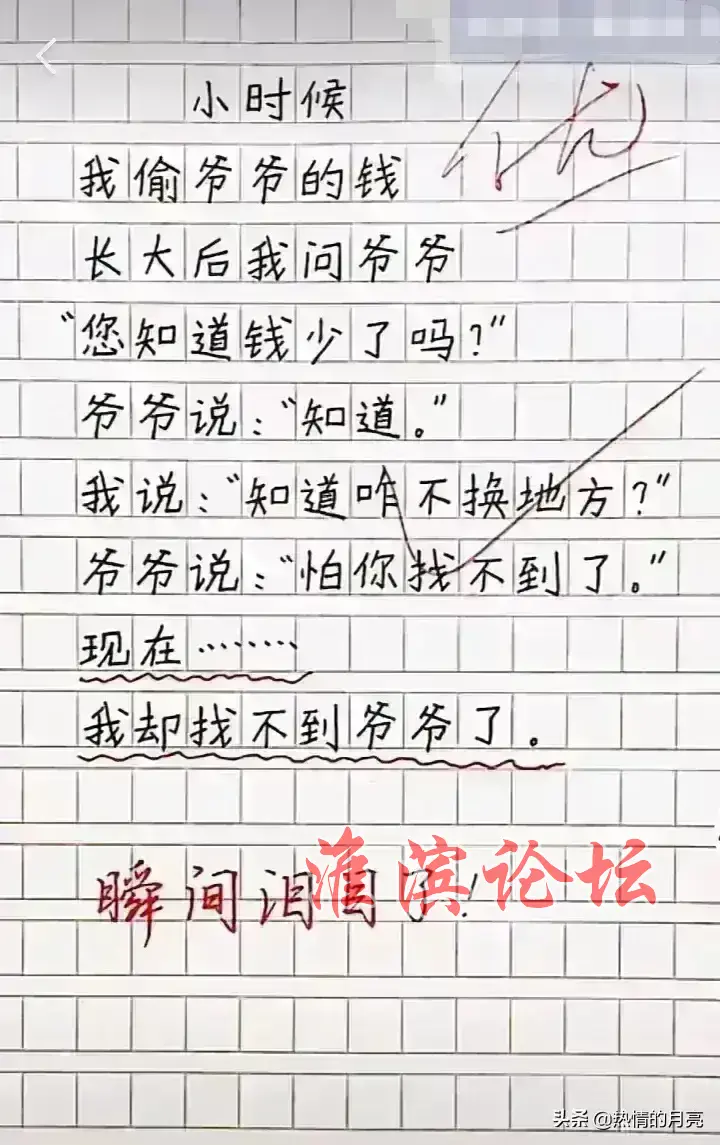 小时候
优
我偷爷爷的钱
长大后我问爷爷
“您知道钱少了吗？”
爷爷说：“知道。”
我说：“知道咋不换地方？”
爷爷说：“怕你找不到了。”
现在………
我却找不到爷爷了。
瞬间泪目了！
淮滨论坛
头条 @热情的月亮